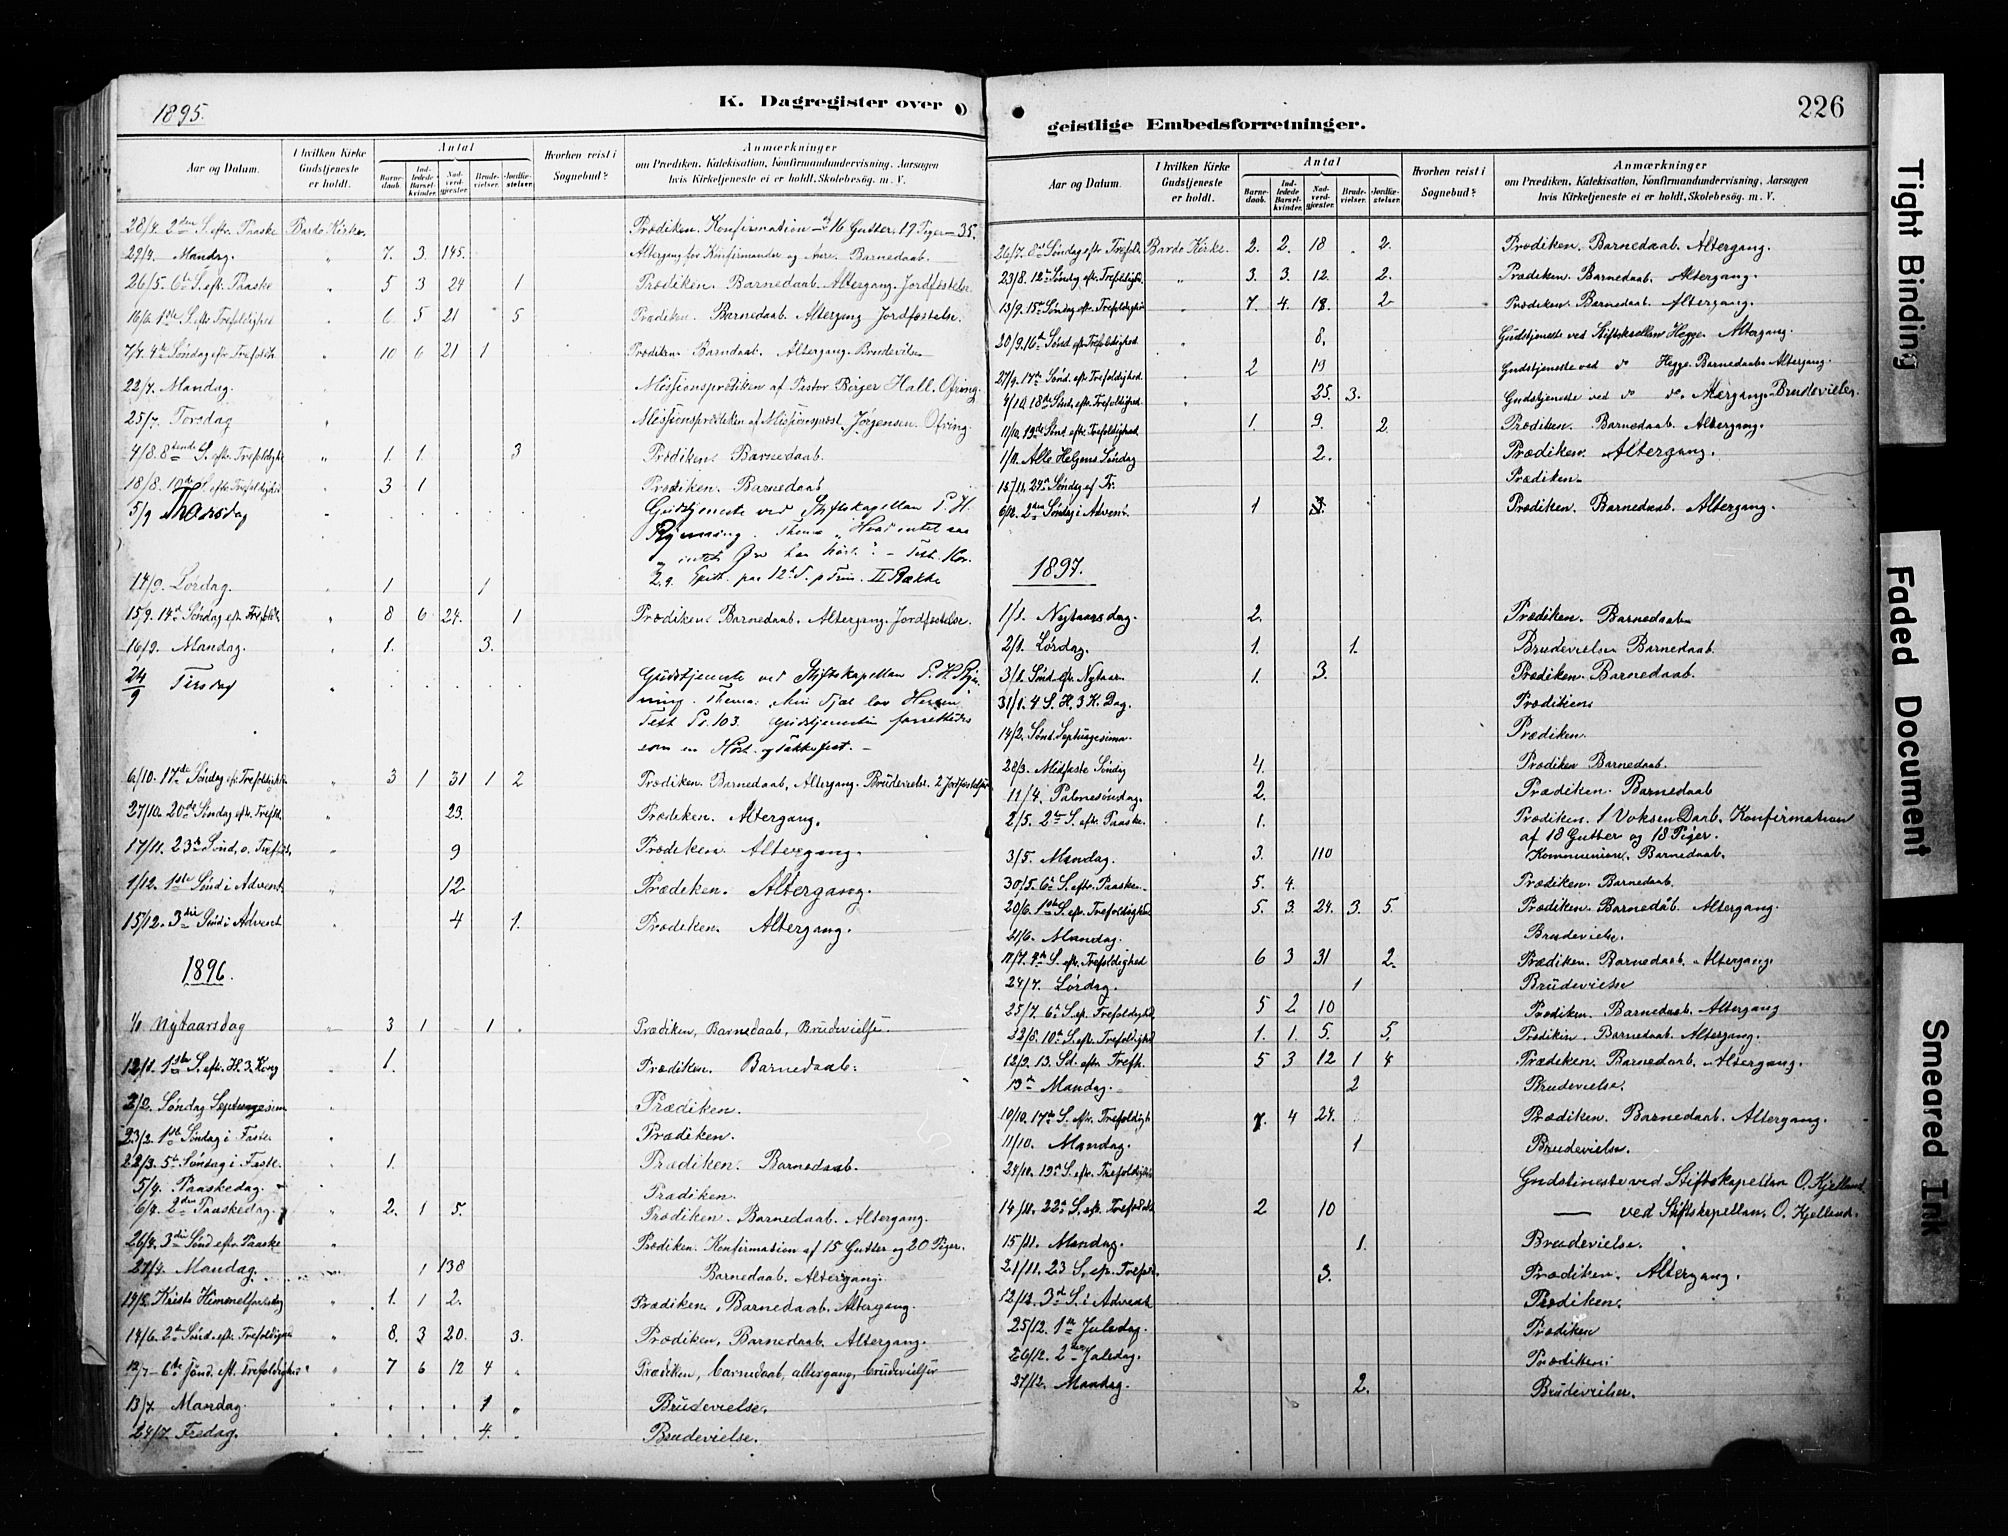 1895.
K. Dagregister over
Aar og Datum.
I hvilken Kirke Gudstjeneste er holdt.
Antal
Barnedaab.
Indledede Barselkvinder.
Nadverdgjester.
Brudevielser.
Jordfæstelser.
Hvorhen reist i Sognebud?
Anmærkninger
om Prædiken, Katekisation, Konfirmandundervisning, Aarsagen
hvis Kirketjeneste ei er holdt, Skolebesøg. m. V.
28/4. 2den S. eftr. Paaske Bardo Kirke. Prædiken. Konfirmation af 16 Gutter, 19 Piger = 35.
29/4. Mandag. " 7. 3. 145. Altergang for Konfirmander og Barnedaab.
26/5. 6te S. eftr. Paaske " 5 3 24 1 Prædiken. Barnedaab. Altergang. Jordfæstelse.
16/6. 1ste S. eftr. Trefoldighed " 6 5 21 5 Prædiken. Barnedaab. Altergang. Jordfæstelse.
7/7. 4de Søndag eftr. Trefoldh. " 10 6 21 1 Prædiken. Barnedaab. Altergang. Brudevielse
22/7. Mandag. " Missionsprædiken af Pastor Birger Hall. Ofring.
25/7. Torsdag " Missionsprædiken af Missionsprest Jørgensen. Ofring.
4/8. 8ende S. eftr. Trefoldighed " 1. 1. 3 Prædiken. Barnedaab.
18/8. 10de S. eftr. Trefoldighed " 3 1 Prædiken. Barnedaab
5/9 Thorsdag " Gudstjeneste ved Stiftskapellan P. H.
Rynning. Thema "Hvad intet saa
intet Øre har hørt." – Text. Kor.
2.9. paa 12te S. p. Trin. II Række
14/9. Lørdag. " 1 1
15/9. 14de Søndag eftr. Trefoldh. " 8 6 24. 1 Prædiken. Barnedaab. Altergang. Jordfæstelse.
16/9. Mandag. " 1. 3.
24/9 Tirsdag " Gudstjeneste ved Stiftskapellan P. H. Ryn-
ning. Thema: Min Sjæl lov Herren
Text Ps. 103. Gudstjenesten forrettedes
som en Høst- og Takkefest. –
6/10. 17de Søndag eftr. Trefoldighed " 3 1 31 1 2 Prædiken. Barnedaab, Altergang. Brudevielse. 2 Jordfæstelser
27/10. 20de Søndag eftr. Trefold. " 23. Prædiken. Altergang.
17/11. 23de Sønd. e. Trefoldh. " 9 Prædiken. Altergang.
1/12. 1ste Sønd i Advent " 12 Prædiken. Altergang.
15/12. 3die Sønd i Advent " 4 1. Prædiken. Altergang.
1896.
1/1 Nytaarsdag " 3 1 1 Prædiken, Barnedaab, Brudevielse.
12/1. 1ste S. eftr. H. 3 Kong " 1. Prædiken. Barnedaab.
2/2. Søndag Septuagesim. " Prædiken.
23/2. 1ste Søndag i Faste. " Prædiken.
22/3. 5te Søndag i Faste. " 1. Prædiken. Barnedaab.
5/4. Paaskedag. " Prædiken.
6/4. 2den Paaskedag. " 2. 1 5. Prædiken. Barnedaab. Altergang.
26/4. 3die Sønd eftr. Paaske " Prædiken. Konfirmation af 15 Gutter og 20 Piger.
27/4. Mandag. " 1 138 Barnedaab. Altergang.
14/5. Kristi Himmelfartsdag " 1. 1 2. Prædiken. Barnedaab. Altergang.
14/6. 2den Sønd. eftr. Trefoldighed " 8. 3 20. 3. Prædiken, Barnedaab, Altergang.
12/7 – 6te Sønd. eft. Trefoldighed " 7 6 12 4 Prædiken, barnedaab, altergang, brudevielser
13/7. Mandag. " 1 " Brudevielse.
24/7. Fredag. " 4. Brudevielse.
226
geistlige Embedsforretninger.
Aar og Datum.
I hvilken Kirke Gudstjeneste er holdt.
Antal
Barnedaab.
Indledede Barselkvinder.
Nadverdgjester.
Brudevielser.
Jordfæstelser.
Hvorhen reist i Sognebud?
Anmærkninger
om Prædiken, Katekisation, Konfirmandundervisning, Aarsagen
hvis Kirketjeneste ei er holdt, Skolebesøg. m. V.
26/7. 8de Søndag eftr. Trefoldh. Bardo Kirke. 2. 2. 18 2. Prædiken. Barnedaab. Altergang.
23/8. 12te Søndag eftr. Trefoldighed " 3. 3. 12. 2. Prædiken. Barnedaab. Altergang.
13/9. 15de Søndag eftr. Trefoldighed " 7. 4. 18. 2. Prædiken. Barnedaab. Altergang.
20/9. 16de Sønd eftr. Trefoldighed " 8. Gudstjeneste ved Stiftskapellan Hegge. Altergang.
27/9. 17de Sønd. eftr. Trefoldighed. " 2 19 Gudstjeneste ved do Hegge. Barnedaab. Altergang.
4/10. 18de Sønd. eftr. Trefoldighed. " 25. 3. Gudstjeneste ved do do. Altergang. Brudevielser.
11/10. 19de Sønd eftr. Trefoldighed 1. 9. 2. Prædiken. Barnedaab. Altergang.
1/11. Alle Helgens Søndag 2. Prædiken. Altergang.
15/11. 24de Søndag ef Tr. Prædiken.
6/12. 2den Søndag i Advent 1 3. Prædiken. Barnedaab. Altergang.
1897.
1/1. Nytaarsdag. 2. Prædiken. Barnedaab.
2/1. Lørdag. 1. 1. Brudevielse Barnedaab.
3/1. Sønd. eftr. Nytaar. 1. 3. Prædiken. Barnedaab.
31/1. 4 S. H. 3 K. Dag. Prædiken.
14/2. Sønd. Septuagesima. Prædiken.
28/3. Midfaste Søndag 4. Prædiken Barnedaab.
11/4. Palmesøndag. 2. Prædiken. Barnedaab
2/5. 2den S. eftr. Paaske. 1. Prædiken. 1 Voksen Daab. Konfirmation
af 18 Gutter og 18 Piger.
3/5. Mandag. 3. 110 Kommunion. Barnedaab.
30/5. 6te S. eftr. Paaske. 5. 4. Prædiken. Barnedaab.
20/6. 1ste S. eftr. Trefoldighed 5. 3. 24. 3. 5. Prædiken. Barnedåb. Altergang.
21/6. Mandag. Brudevielse.
11/7. 4de S. eftr. Trefoldighed 6 3 31 2. Prædiken. Barnedaab. Altergang.
24/7. Lørdag. 1 Brudevielse
25/7. 6te S. ef. Trefoldighed 5 2 10 Prædiken. Barnedaab. Altergang
22/8. 10de S. eftr. Trefoldighed 1. 1. 5. 5. Prædiken. Barnedaab. Altergang.
12/9. 13. Sd. eftr. Trefh. 5 3 12 1 4 Prædiken. Barnedaab. Altergang.
13de Mandag. 2 Brudevielse.
10/10. 17de S. eftr. Trefoldigh 7. 4 24. Prædiken. Barnedaab. Altergang.
11/10. Mandag. 1 Brudevielse.
24/10. 19de S. eftr. Trefoldighed Gudstjneste ved Stiftskapellan O. Kjelland
14/11. 22de S. eftr. Trefoldh. 2 10 — ved Stiftskapellan, O. Kjelland.
15/11. Mandag. 1. Brudevielse.
21/11. 23 S. eftr. Trefold. 3. Prædiken. Altergang.
12/12. 3de S. i Advent Prædiken.
25/12. 1ste Juledag. Prædiken
26/12. 2den Juledag. Prædiken
27/12. Mandag. 2. Brudevielser.
Tight Binding
Faded Document
Smeared Ink